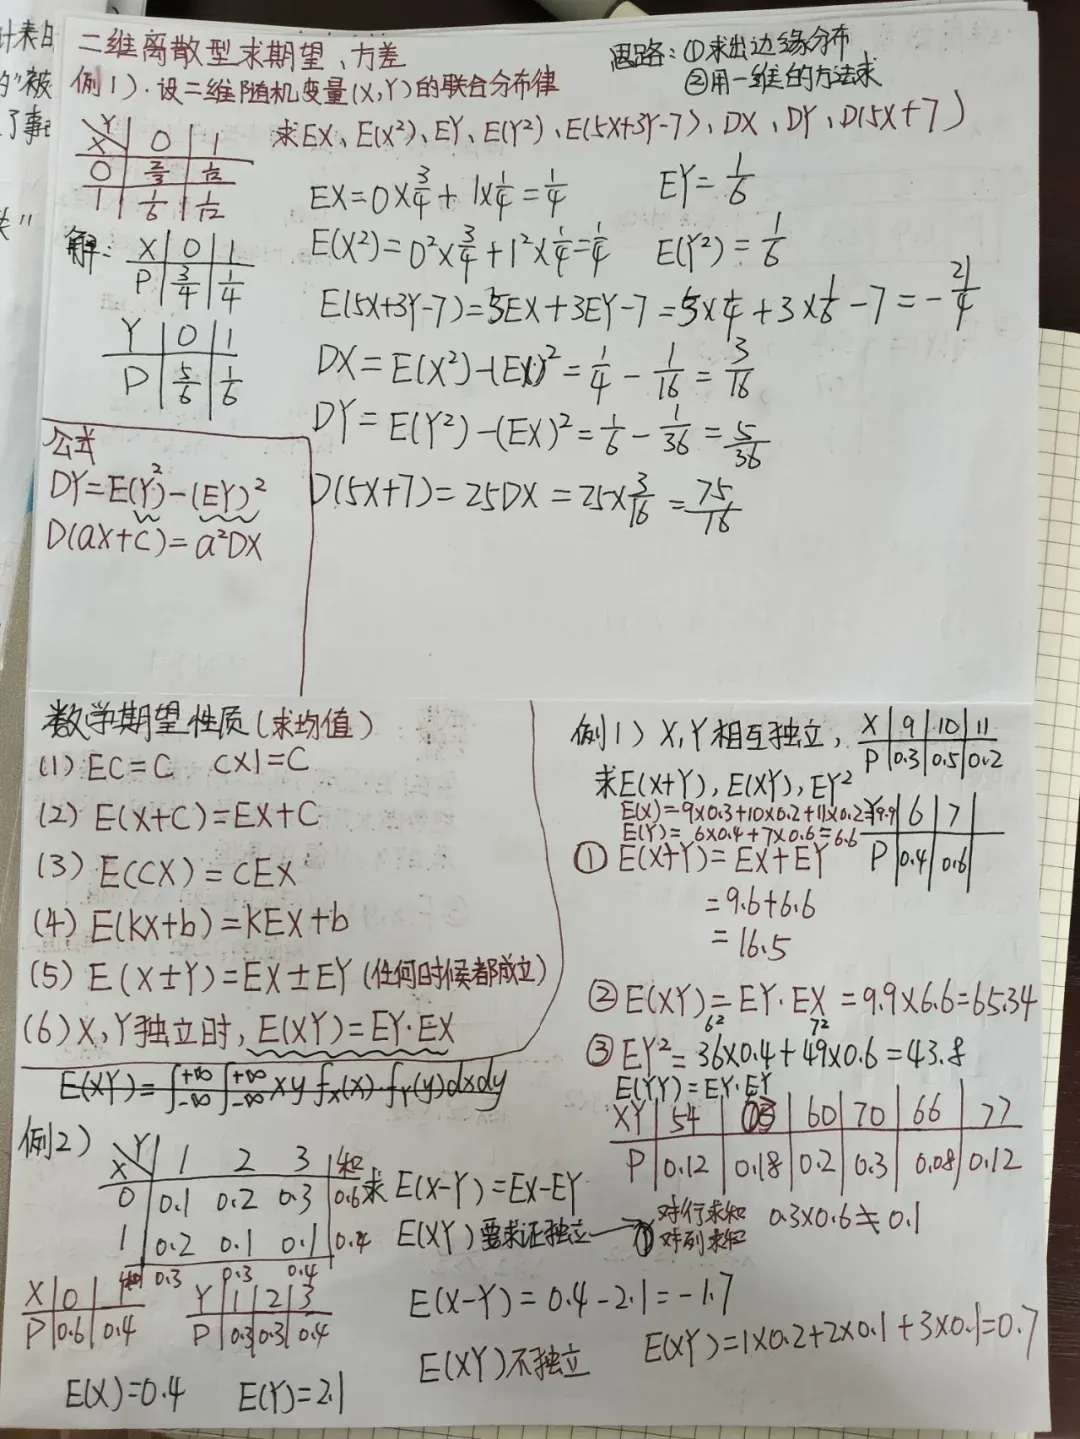 二维离散型求期望、方差
思路：①求出边缘分布
②用一维的方法求
例1）.设二维随机变量(X,Y)的联合分布律
求EX、E(X²)、EY、E(Y²)、E(5X+3Y-7)、DX、DY、D(5X+7)
X Y 0 1
0 2/3 1/12
1 1/6 1/12
解：
X 0 1
P 3/4 1/4
Y 0 1
P 5/6 1/6
EX=0×3/4+1×1/4=1/4
EY=1/6
E(X²)=0²×3/4+1²×1/4=1/4
E(Y²)=1/6
E(5X+3Y-7)=5EX+3EY-7=5×1/4+3×1/6-7=-21/4
DX=E(X²)-(EX)²=1/4-1/16=3/16
DY=E(Y²)-(EX)²=1/6-1/36=5/36
D(5X+7)=25DX=25×3/16=75/16
公式
DY=E(Y²)-(EY)²
D(aX+C)=a²DX
数学期望性质(求均值)
(1) EC=C C×1=C
(2) E(X+C)=EX+C
(3) E(CX)=CEX
(4) E(KX+b)=KEX+b
(5) E(X±Y)=EX±EY(任何时候都成立)
(6) X,Y独立时,E(XY)=EY·EX
E(XY)=∫+∞-∞∫+∞-∞xy fX(x)·fY(y)dxdy
例1）X,Y相互独立,
X 9 10 11
P 0.3 0.5 0.2
求E(X+Y),E(XY),EY²
E(X)=9×0.3+10×0.2+11×0.2=9.9
E(Y)=6×0.4+7×0.6=6.6
Y 6 7
P 0.4 0.6
① E(X+Y)=EX+EY
=9.6+6.6
=16.5
② E(XY)=EY·EX=9.9×6.6=65.34
6² 7²
③ EY²=36×0.4+49×0.6=43.8
E(YY)=EY·EY
XY 54 63 60 70 66 77
P 0.12 0.18 0.2 0.3 0.08 0.12
例2）
X Y 1 2 3 和
0 0.1 0.2 0.3 0.6
1 0.2 0.1 0.1 0.4
和 0.3 0.3 0.4
求E(X-Y)=EX-EY
E(XY)要求证独立→
对行求和
对列求和
0.3×0.6≠0.1
X 0 1
P 0.6 0.4
Y 1 2 3
P 0.3 0.3 0.4
E(X-Y)=0.4-2.1=-1.7
E(XY)不独立
E(XY)=1×0.2+2×0.1+3×0.1=0.7
E(X)=0.4 E(Y)=2.1